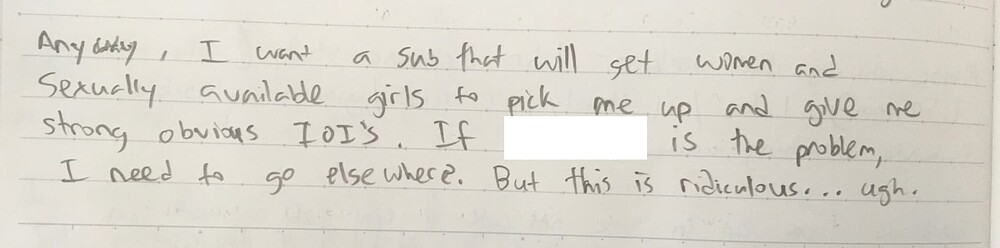 Anyway, I want a sub that will get women and
sexually available girls to pick me up and give me
strong obvious IOI's. If is the problem,
I need to go elsewhere. But this is ridiculous... ugh.